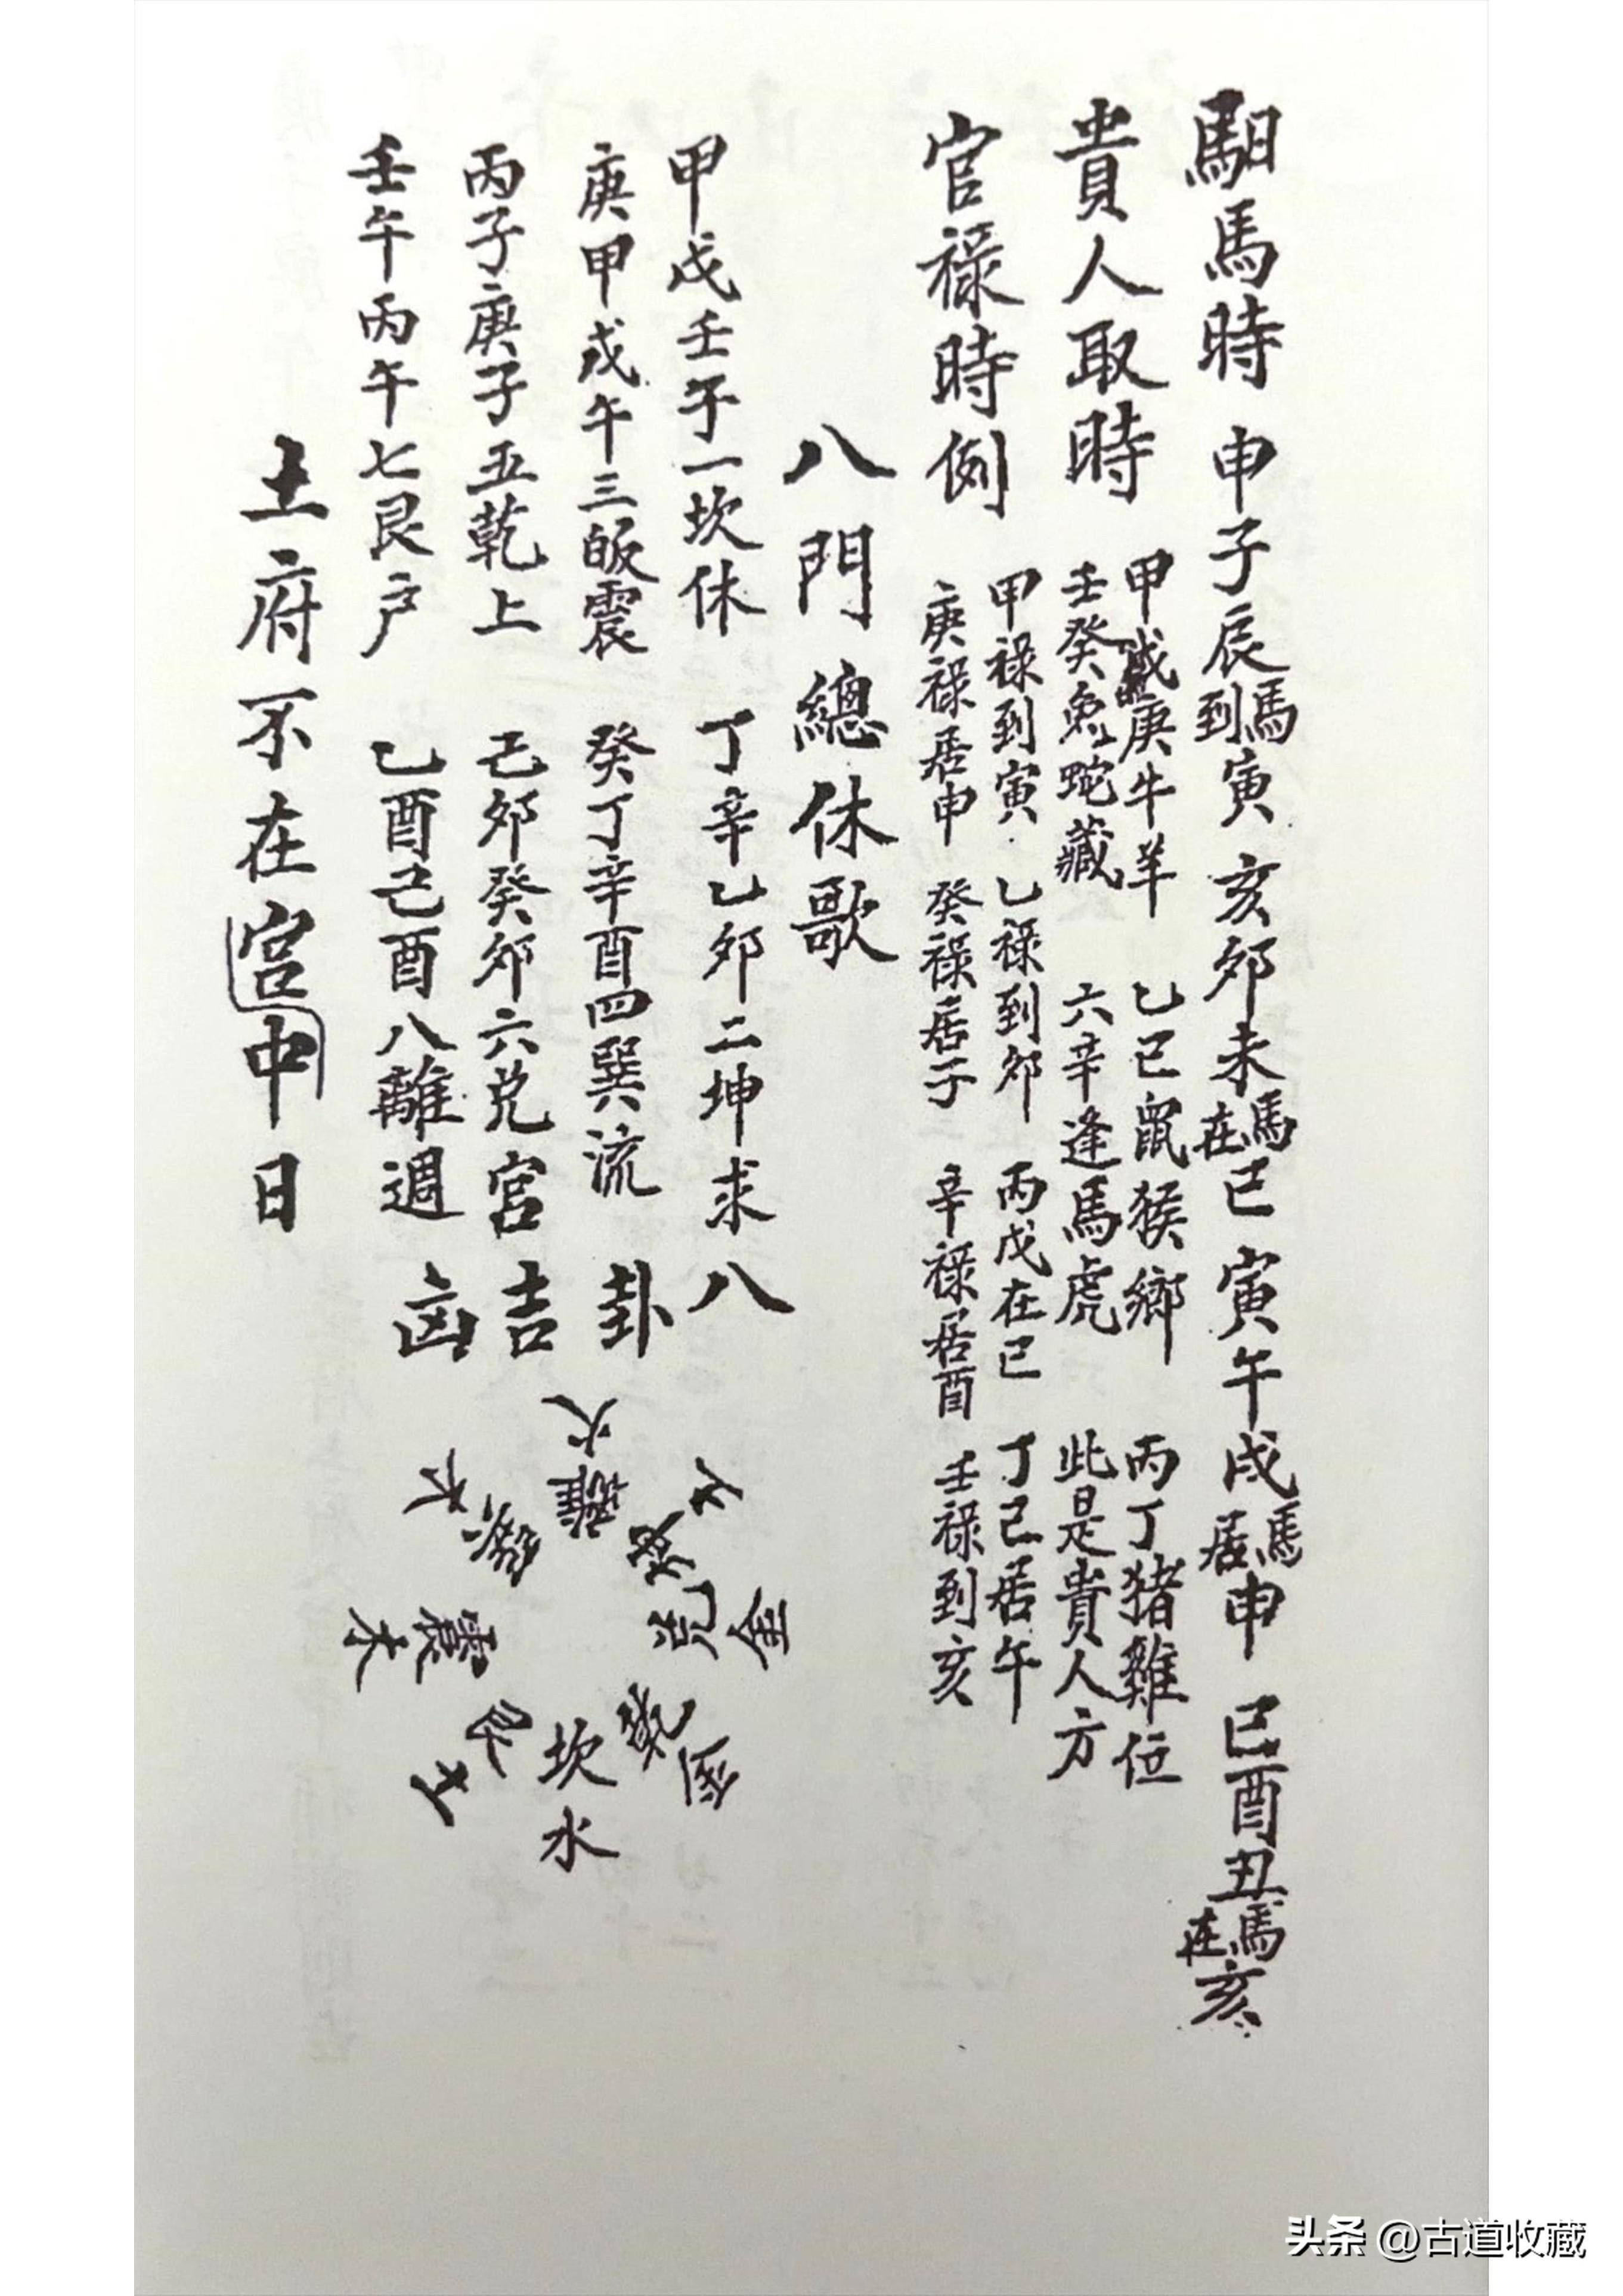 馹馬時 申子辰馬到寅 亥卯未馬在巳 寅午戌馬居申 巳酉丑馬在亥
貴人取時
甲戊庚牛羊 乙己鼠猴鄉 丙丁猪雞位
壬癸兔蛇藏 六辛逢馬虎 此是貴人方
官禄時例
甲禄到寅 乙禄到卯 丙戊在巳 丁己居午
庚禄居申 癸禄居子 辛禄居酉 壬禄到亥
八門總休歌
甲戊壬子一坎休 丁辛乙卯二坤求
庚甲戊午三皈震 癸丁辛酉四巽流
丙子庚子五乾上 己卯癸卯六兑宮
壬午丙午七艮户 乙酉己酉八離週
八卦吉凶
離火
坤土
兑金
乾金
坎水
艮土
震木
巽木
土府不在宫中日
头条 @古道收藏